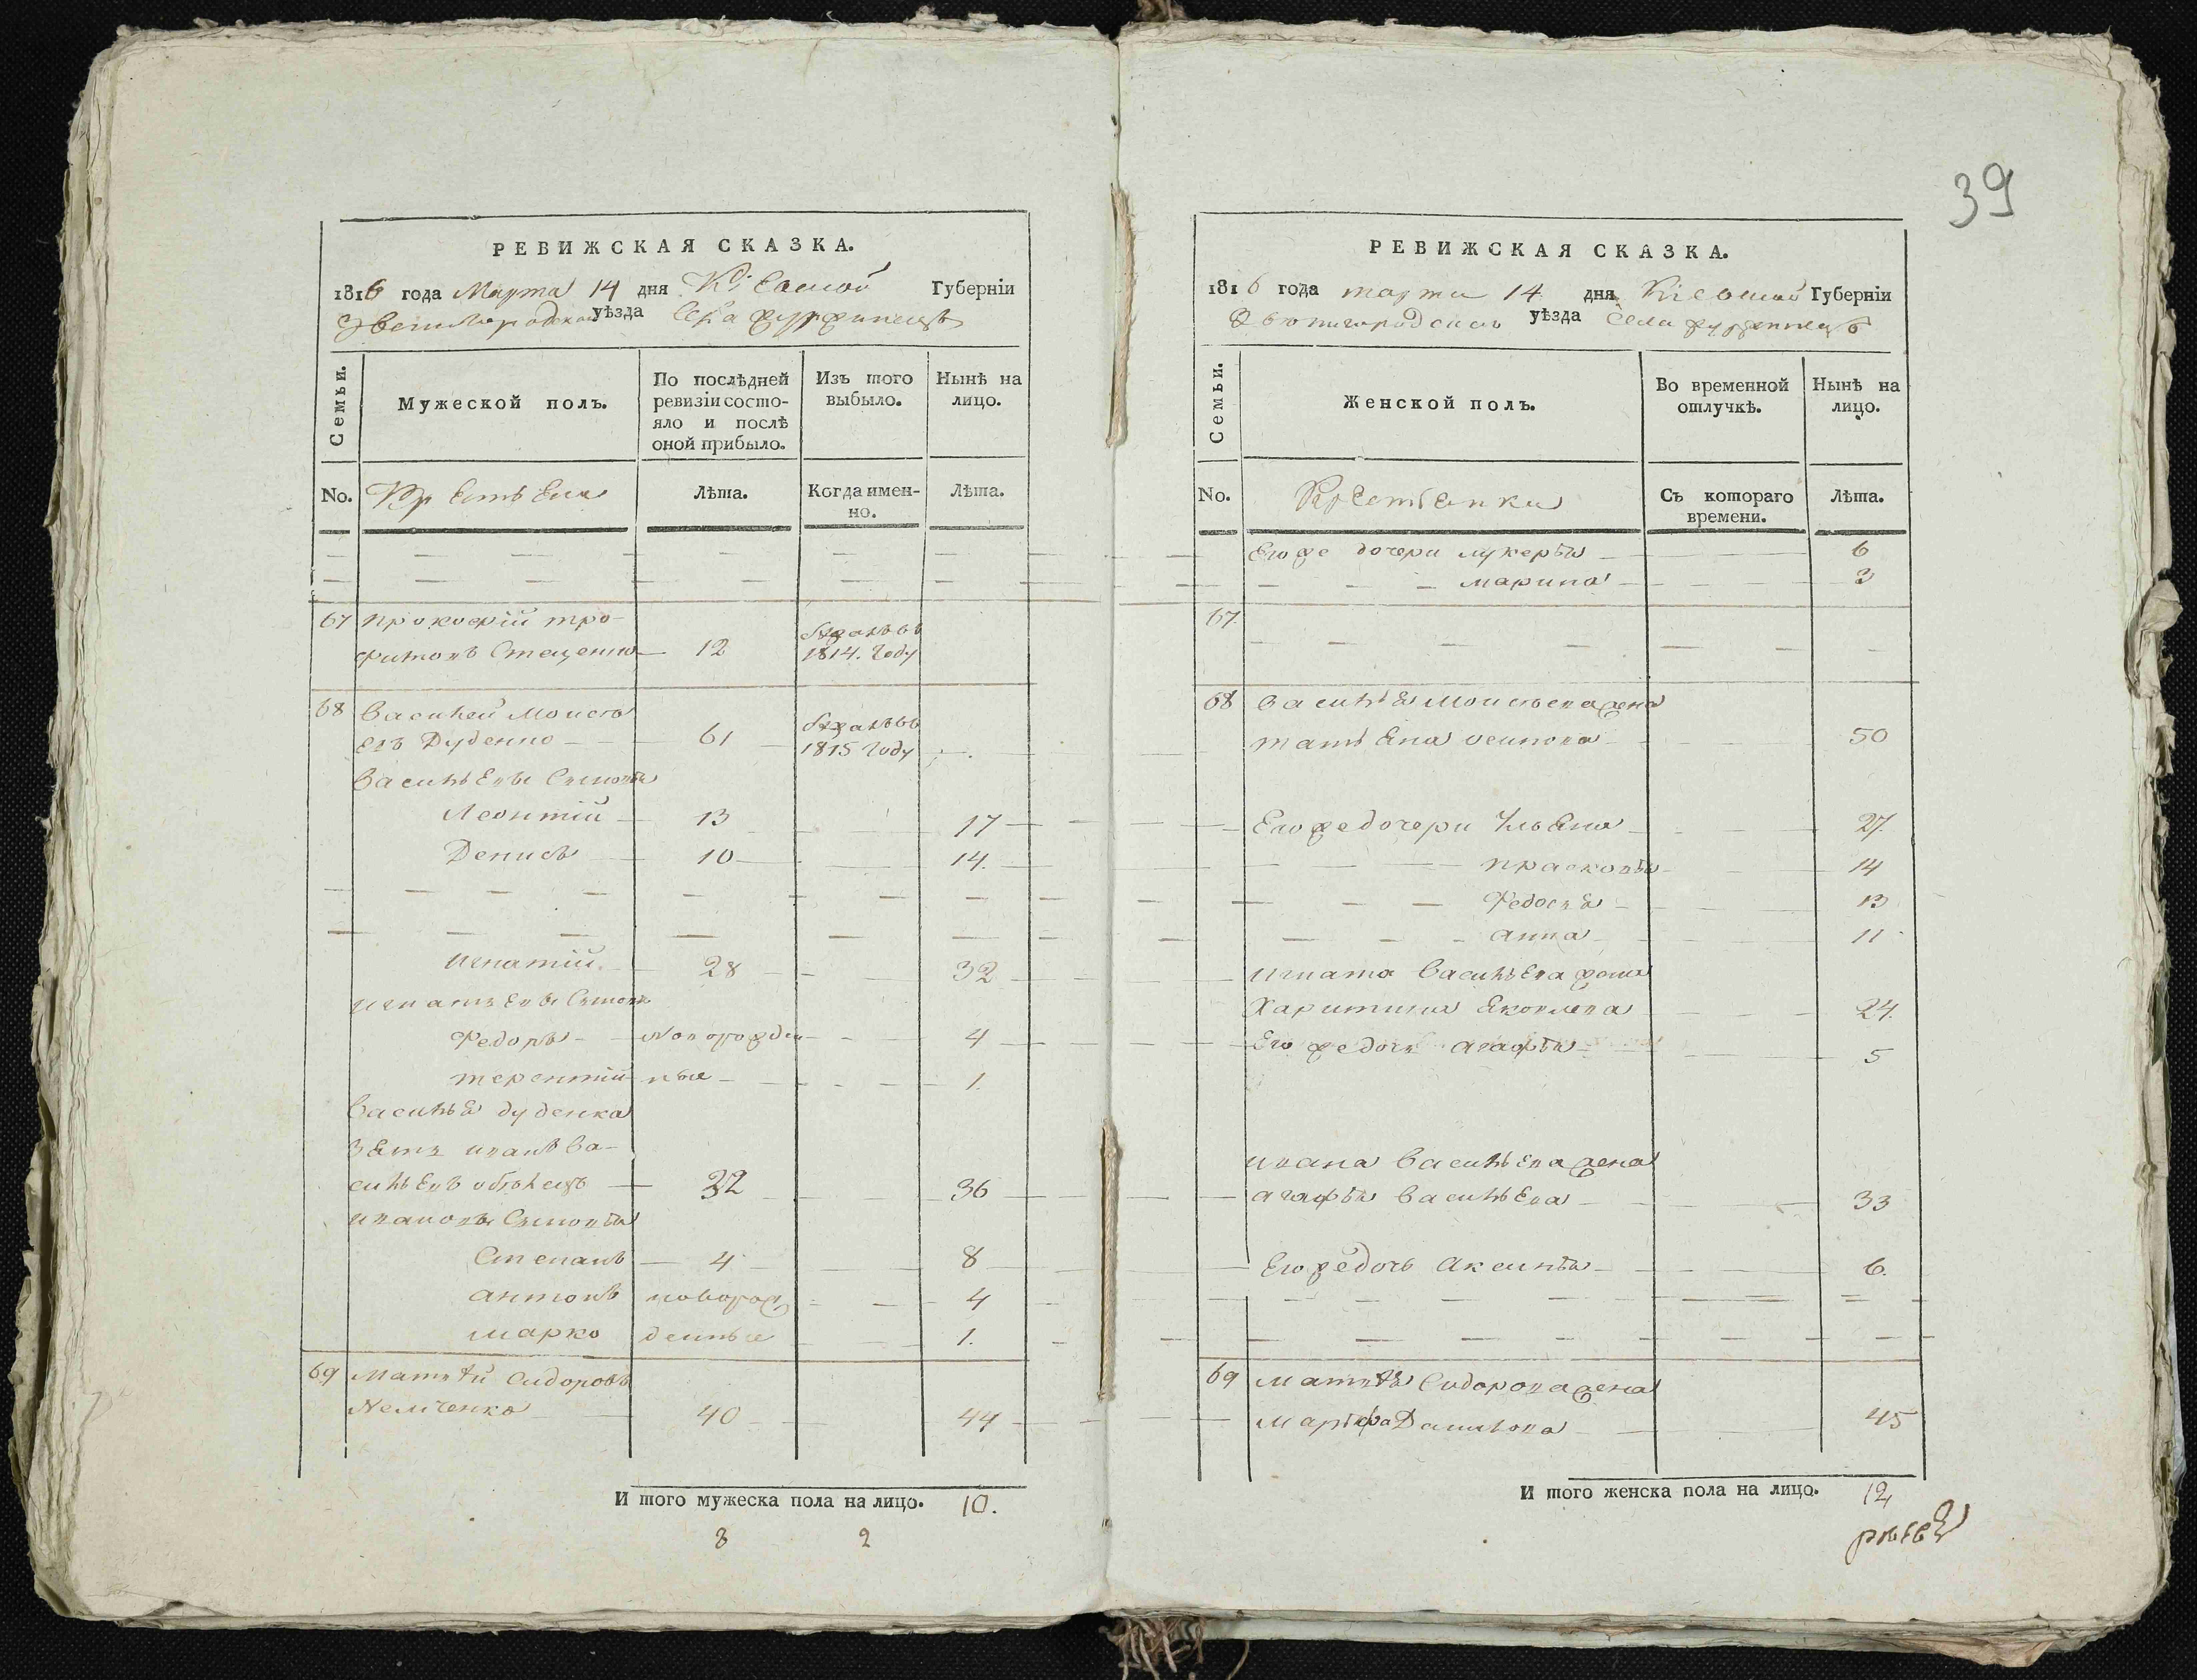 РЕВИЖСКАЯ СКАЗКА.
1816 года Марта 14 дня Кіевской Губерніи
Звенигородского уѣзда Села
Семьи.
Мужеской полъ.
По послѣдней ревизіи состо-
яло и послѣ
оной прибыло.
Изъ того
выбыло.
Нынѣ на
лицо.
No.
Лѣта.
Когда имен-
но.
Лѣта.
67 Прокофій Тро-
фимовъ Стеценко 12 1814. году
68 Василей Моисѣ
евъ Дуденко 61 1815 году
Васильевы Сыновья
Леонтій 13 17
Денисъ 10 14.
Игнатій 28 32
Игнатьевы Сыновья
Федоръ Новорожден 4
Терентій ные 1.
Василья Дуденка
зять Иванъ Ва-
сильевъ 32 36
Ивановы Сыновья
Степанъ 4 8
Антонъ новорож 4
Марко денные 1.
69 Матвѣй Сидоровъ
Немченко 40 44
И того мужеска пола на лицо. 10.
8 2
39
РЕВИЖСКАЯ СКАЗКА.
1816 года марта 14 дня Кіевской Губерніи
уѣзда Села
Семьи.
Женской полъ.
Во временной
отлучкѣ.
Нынѣ на
лицо.
No.
Крестьянки
Съ котораго
времени.
Лѣта.
Его же дочери Лукерья 6
Марина 3
67.
68 Василья Моисѣева жена
Татьяна Осипова 50
Его же дочери Ульяна 27.
Прасковья 14
Федосья 13
Анна 11
Игната Васильева жена
Харитина Яковлева 24.
Его же дочь Агафья 5
Ивана Васильева жена
Агафья Васильева 33
Его же дочь Аксинья 6.
69 Матвѣя Сидорова жена
Марфа Данилова 45
И того женска пола на лицо. 12